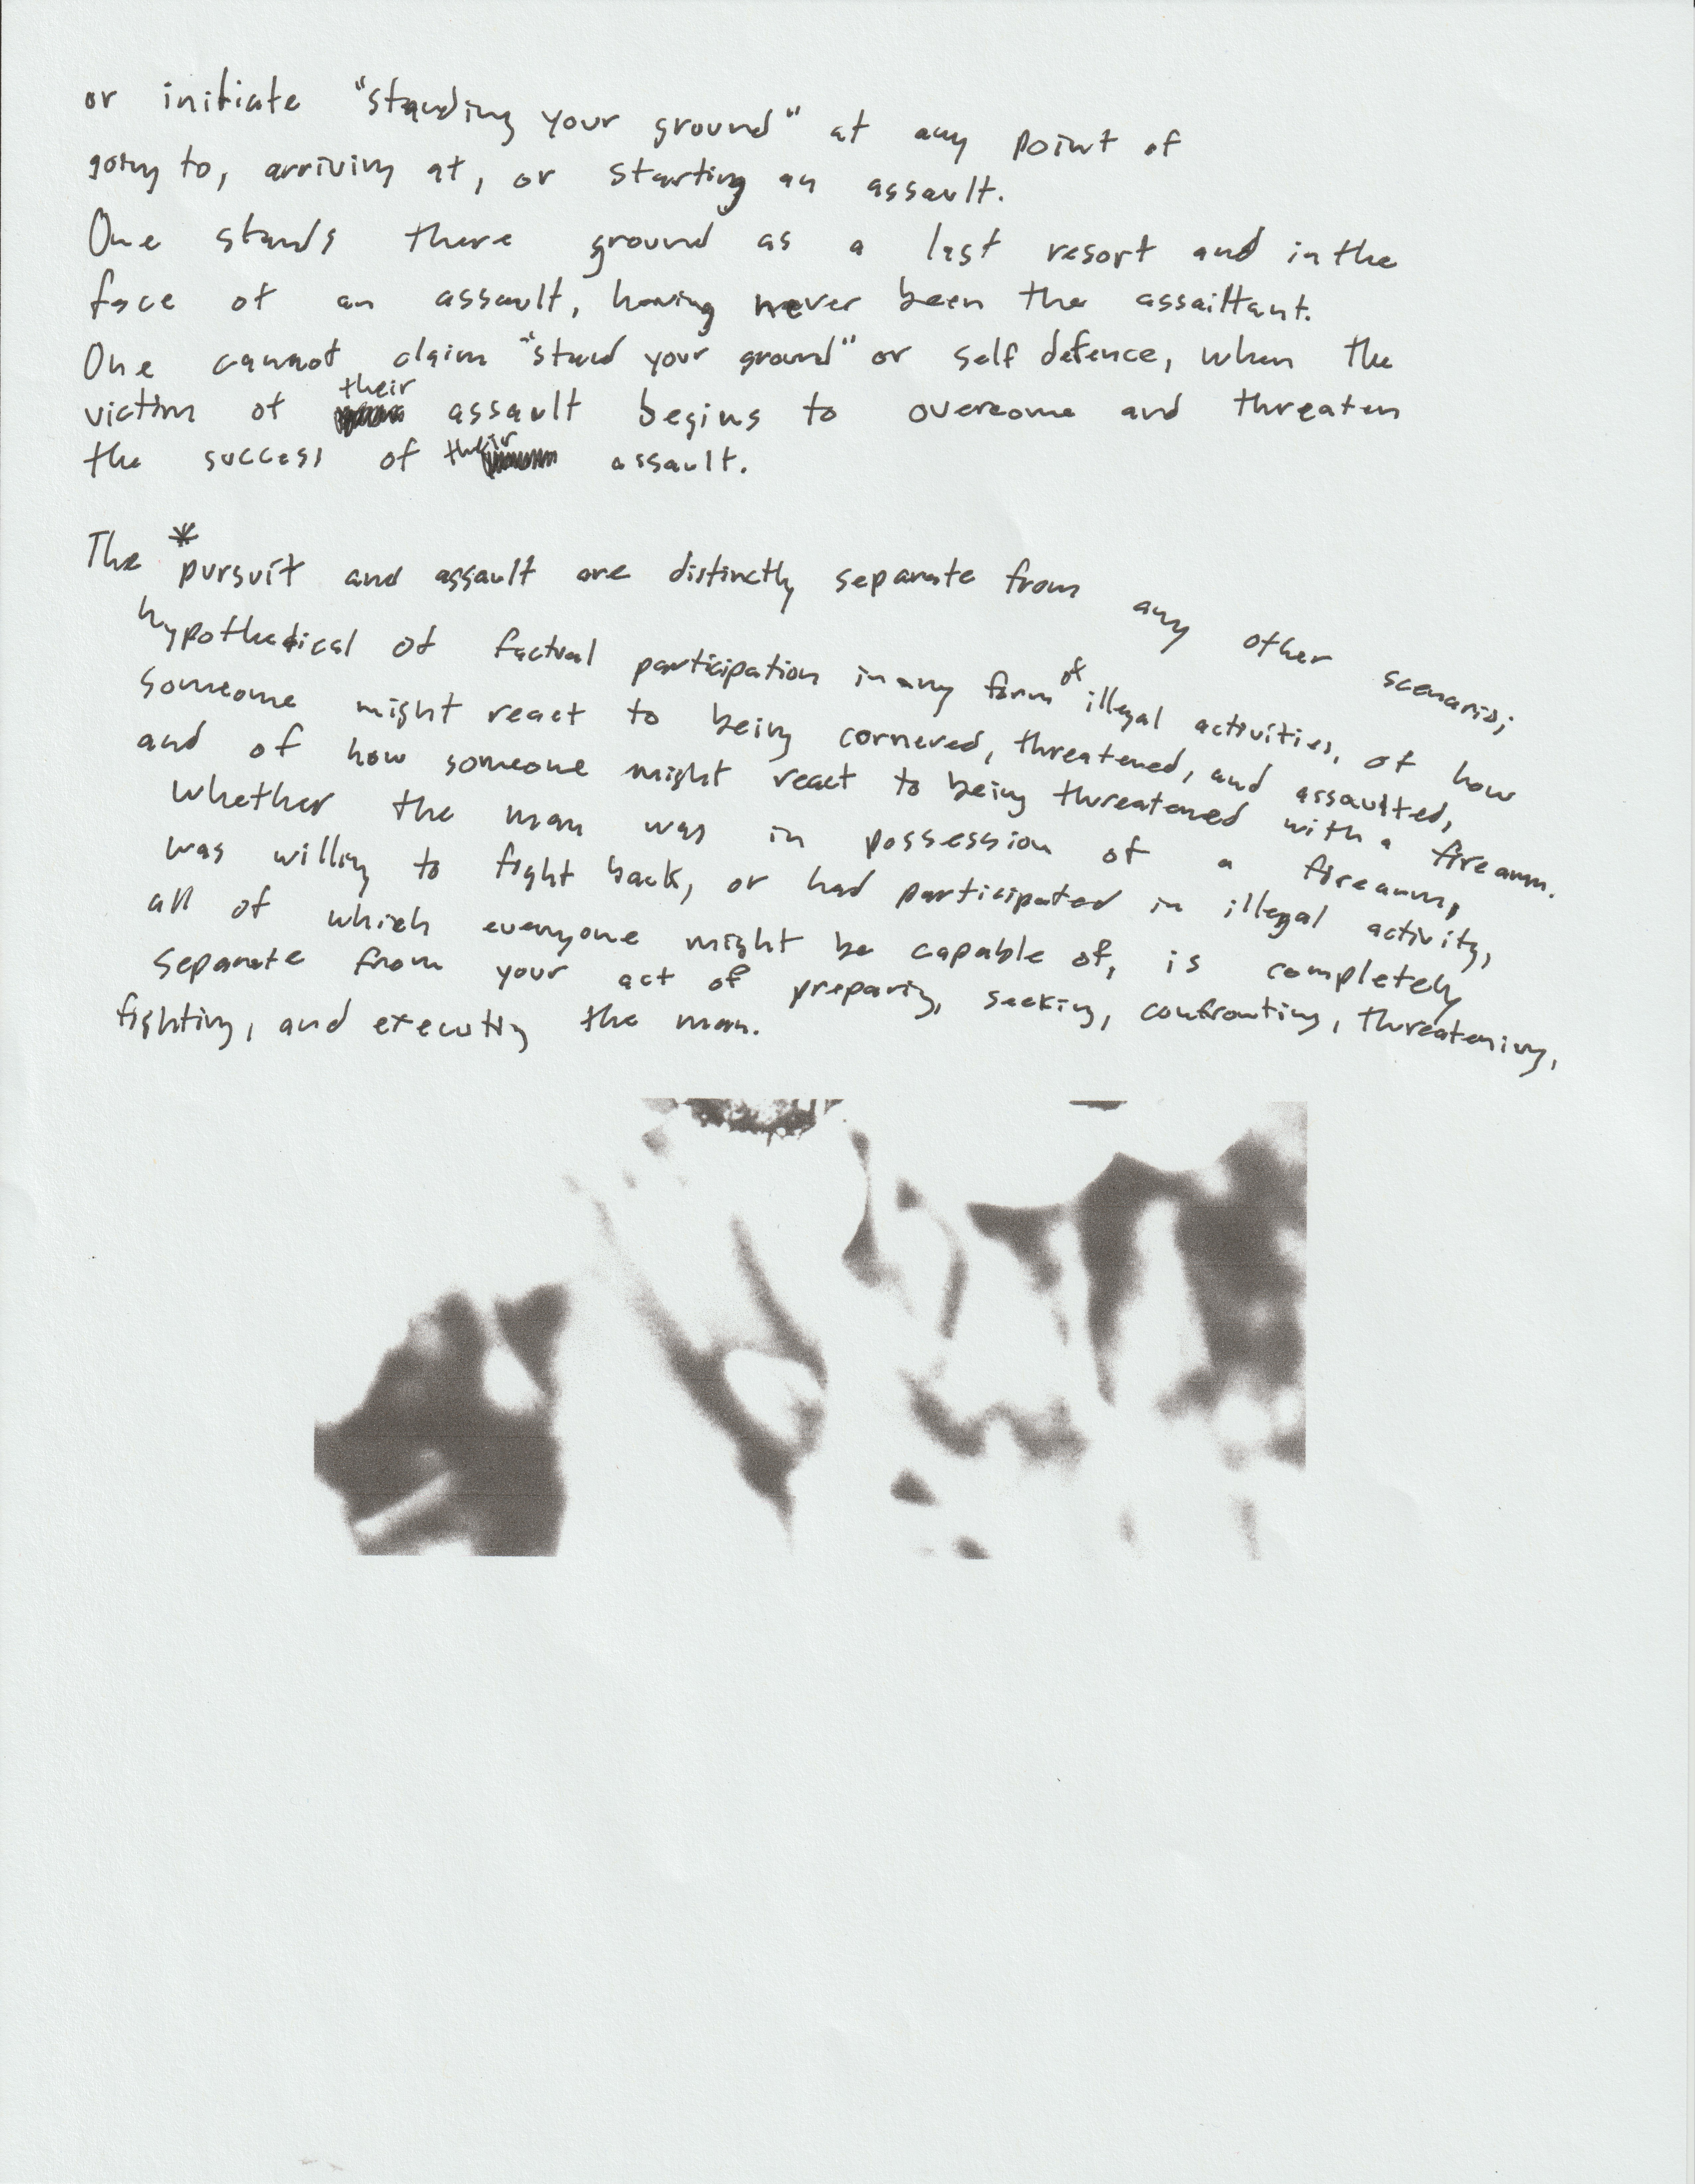 or initiate "standing your ground" at any point of
going to, arriving at, or starting an assault.
One stands there ground as a last resort and in the
face of an assault, having never been the assailtant.
One cannot claim "stand your ground" or self defence, when the
victim of their assault begins to overcome and threaten
the success of their assault.
The *pursuit and assault are distinctly separate from any other scenario;
hypothetical of factual participation in any form of illegal activities, of how
someone might react to being cornered, threatened, and assaulted,
and of how someone might react to being threatened with a firearm.
Whether the man was in possession of a firearm,
was willing to fight back, or had participated in illegal activity,
all of which everyone might be capable of, is completely
separate from your act of preparing, seeking, confronting, threatening,
fighting, and executing the man.